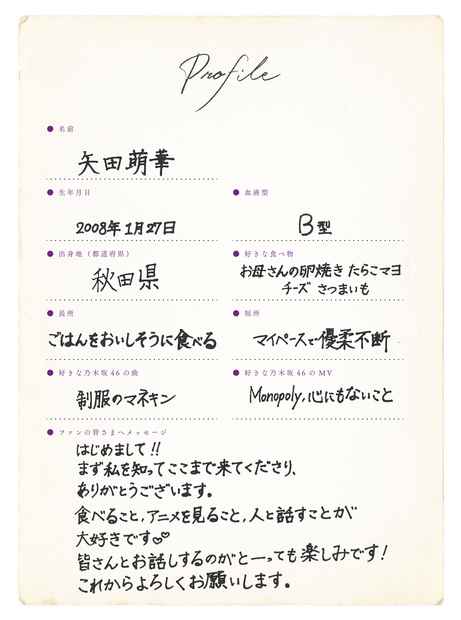 Profile
名前
矢田萌華
生年月日
2008年1月27日
血液型
B型
出身地（都道府県）
秋田県
好きな食べ物
お母さんの卵焼き たらこマヨ
チーズ さつまいも
長所
ごはんをおいしそうに食べる
短所
マイペースで優柔不断
好きな乃木坂46の曲
制服のマネキン
好きな乃木坂46のMV
Monopoly, 心にもないこと
ファンの皆さまへメッセージ
はじめまして!!
まず私を知ってここまで来てくださり、
ありがとうございます。
食べること, アニメを見ること, 人と話すことが
大好きです♡♡
皆さんとお話しするのがと一っても楽しみです!
これからよろしくお願いします。